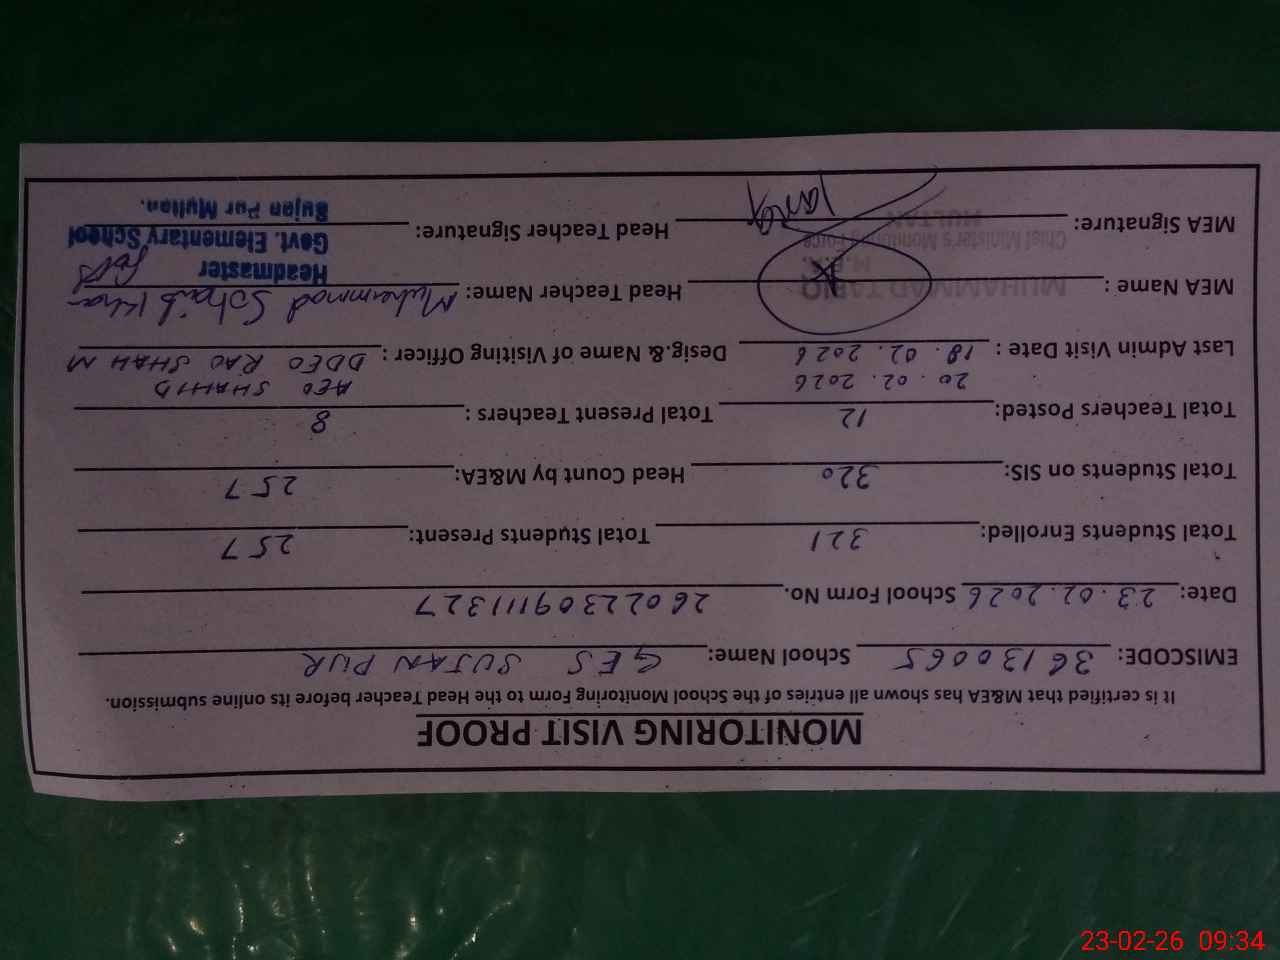 MONITORING VISIT PROOF
It is certified that M&EA has shown all entries of the School Monitoring Form to the Head Teacher before its online submission.
EMISCODE: 36130065 School Name: GES SUJAN PUR
Date: 23.02.2026 School Form No. 260223091111327
Total Students Enrolled: 321 Total Students Present: 257
Total Students on SIS: 320 Head Count by M&EA: 257
Total Teachers Posted: 12 Total Present Teachers : 8
20.02.2026 AEO SHAHID
Last Admin Visit Date : 18.02.2026 Desig.&.Name of Visiting Officer : DDEO RAO SHAH M
MEA Name : MUHAMMAD TARIQ Head Teacher Name: Muhammad Sohaib Khan
M.E.A
Chief Minister's Monitoring Force
MULTAN
MEA Signature: Tariq Head Teacher Signature:
Headmaster
Govt. Elementary School
Sujan Pur Multan.
23-02-26 09:34